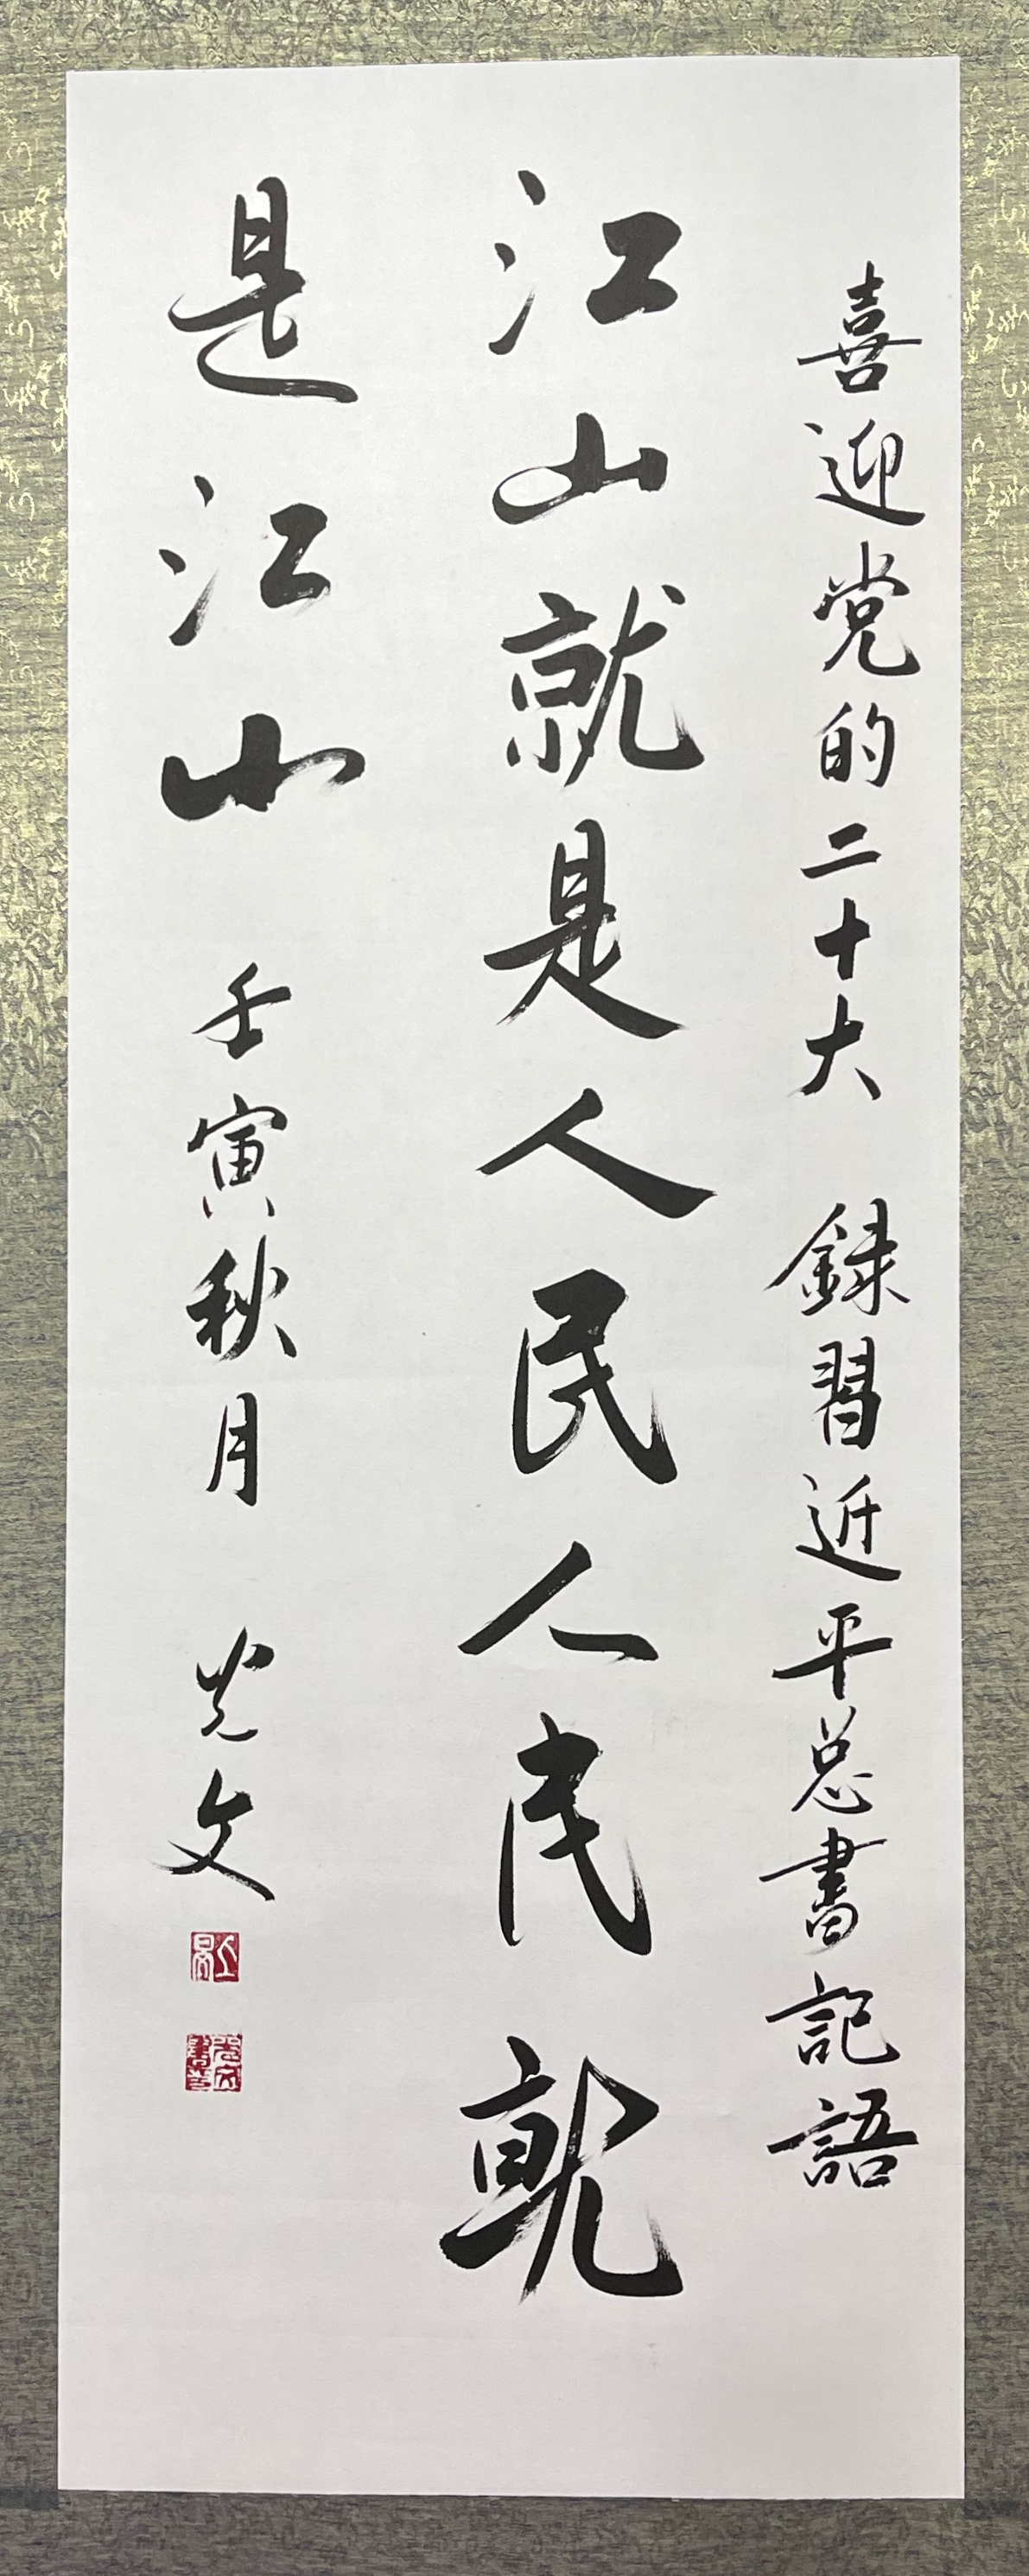 喜迎党的二十大 録習近平总書記語
江山就是人民人民就
是江山 壬寅秋月 光文